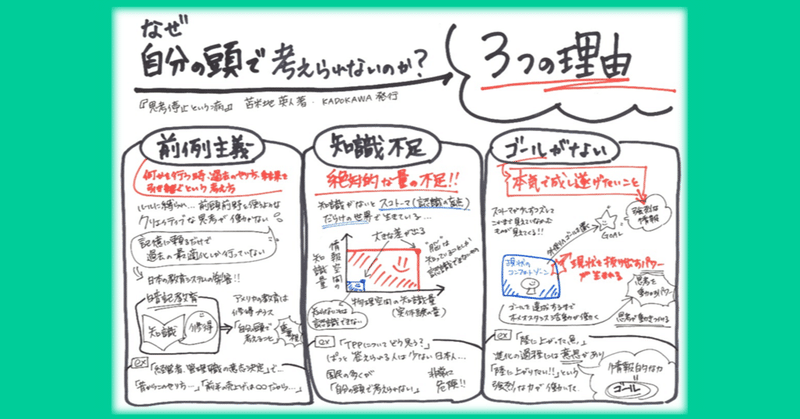 なぜ
自分の頭で考えられないのか?
3つの理由
『思考停止という病』 苫米地 英人著・KADOKAWA 発行
前例主義
何かを行う時、過去のやり方、結果を
という考え方
ルールに縛られ…前頭前野を使うような
クリエイティブな思考が働かない
記憶に頼るだけで
過去の最適化しか行っていない
日本の教育システムの弊害!!
暗記教育
知識
修得
アメリカの教育は
修得プラス
「自分の頭で
考えること」
重要視
ex
「昔からのやり方…」「前年の売上げは〇〇だから…」
知識不足
絶対的な量の不足!!
知識がないとスコトーマ(認識の盲点)
だらけの世界で生きている…
大きな差が出る
情報空間の
知識量
"脳"は
知っていることしか
認識できないので
物理空間の知識量
(実体験の量)
知らないものは
認識できない…
ex
「TPPについてどう見る?」
ぱっと答えられる人は少ない日本人…
国民の多くが
「自分の頭で考えられない」
非常に
危険!!
ゴールがない
本気で成し遂げたいこと
スコトーマが
ここまで見えていなかった
ものが見えてくる!!
GOAL
強烈な
情報
現状の
コンフォートゾーン
現状を振り切るパワー
が生まれる
ゴールを達成するまで
ホメオスタシス活動が働く
思考を
動かすパワー
思考が動きつづける
ex
「陸に上がった魚」
進化の過程には意思があり
「陸に上がりたい!!」という
強烈な力が働かった
情報的な力
ゴール